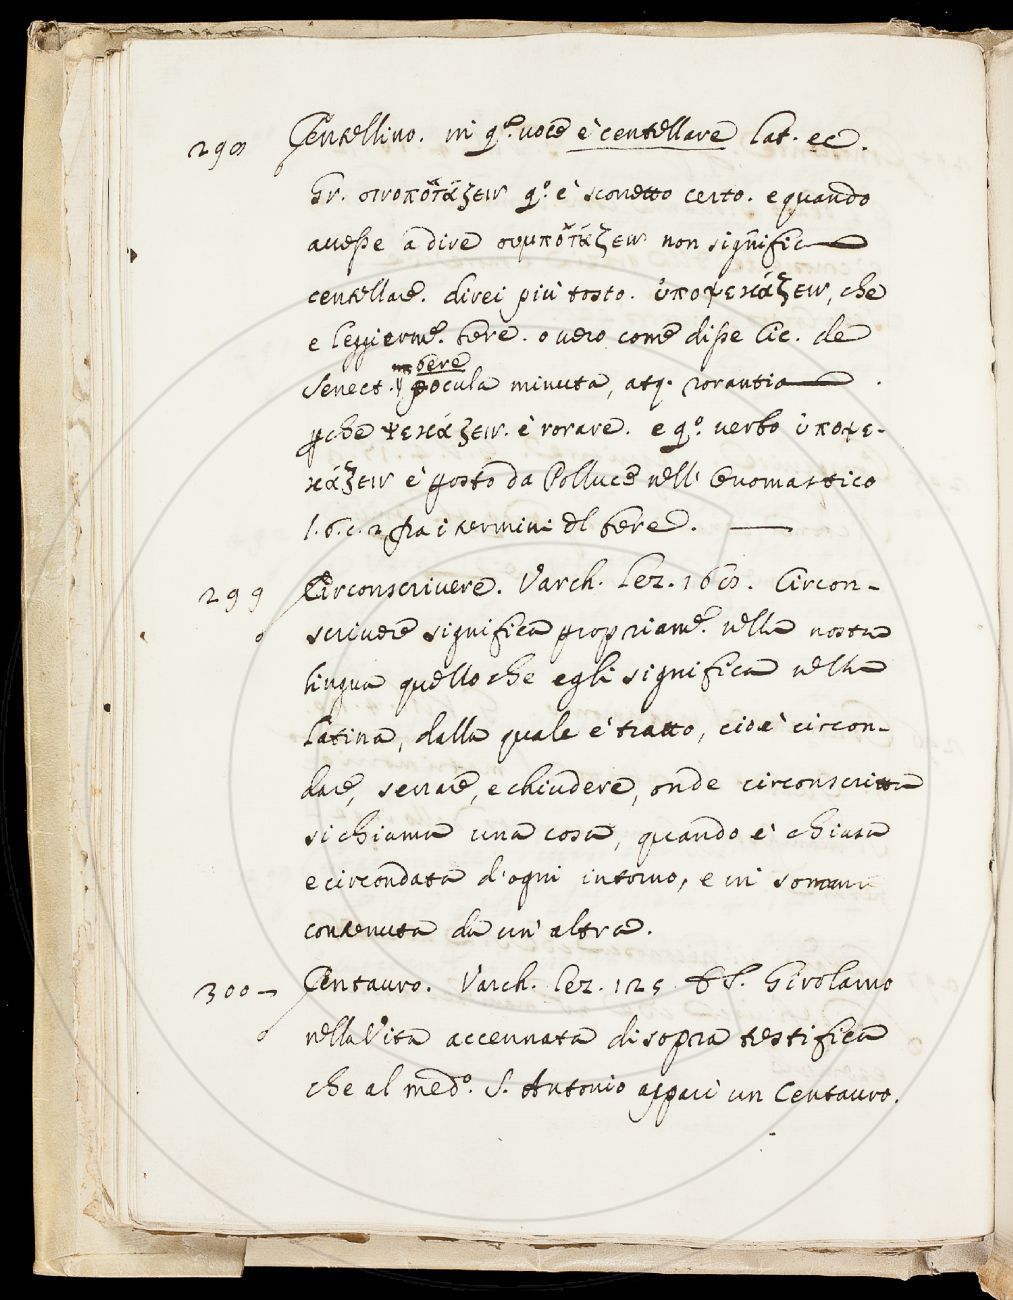 298 Centellino. in q.ª voce è centellare lat. ec.
Gr. οινοποτάζειν q.º è scorretto certo. e quando
avesse a dire συμποτάζειν non signific
centellare. direi più tosto. ὑποψεκάζειν, che
e leggierm.e bere. o vero come disse Cic. de
Senect. bere pocula minuta, atq. rorantia
pche ψεκάζειν. è rorare. e q.º verbo ὑποψε-
κάζειν è posto da Polluce nell' Onomastico
l. 6. c. 2 fra i termini dl bere.
299 Circonscrivere. Varch. Lez. Circon-
scrivere significa propriam.e nella nostra
lingua quello che egli significa nella
latina, dalla quale è tratto, cioè circon-
dare, serrare, e chiudere, onde circonscritta
si chiama una cosa, quando è chiusa
e circondata d'ogni intorno, e in somma
contenuta da un' altra.
300 Centauro. Varch. lez. 125 S. Girolamo
nella Vita accennata di sopra testifica
che al med.º S. Antonio apparì un Centauro.